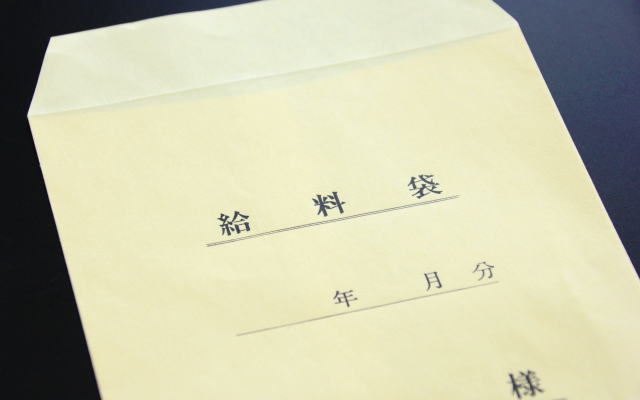 給料袋
年月分
様